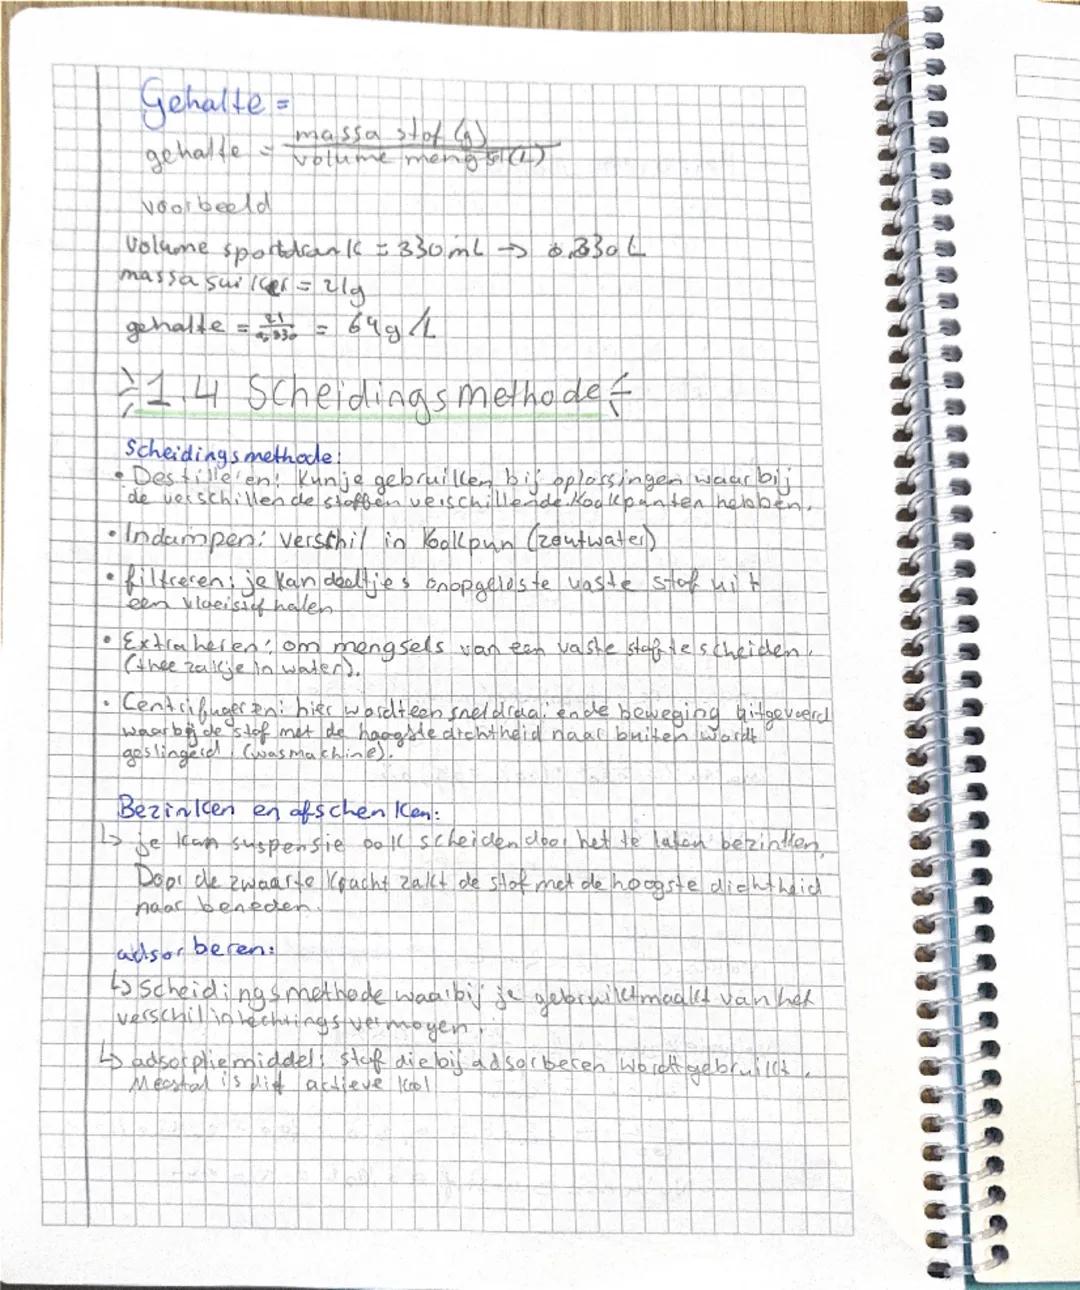 Gehalte =
gehalte = massa stof (g)
volume mengsel (L)
voorbeeld
Volume sportdrank = 330 mL → 0,330 L
massa suiker = 21g
gehalte = 21/0,330 = 64 g/L
1.4 Scheidingsmethode
Scheidingsmethode:
• Destilleren: Kun je gebruiken bij oplossingen waarbij
de verschillende stoffen verschillende kookpunten hebben.
• Indampen: verschil in kookpun (zoutwater)
• filtreren: je kan deeltjes onopgeloste vaste stof uit
een vloeistof halen
• Extraheren: om mengsels van een vaste stof te scheiden.
(thee zakje in water).
• Centrifugeren: hier wordt een snel draaiende beweging uitgevoerd
waarbij de stof met de hoogste dichtheid naar buiten wordt
geslingerd. (wasmachine).
Bezinken en afschenken:
↳ je kan suspensie ook scheiden door het te laten bezinken.
Door de zwaarte kracht zakt de stof met de hoogste dichtheid
naar beneden.
adsorberen:
↳ Scheidingsmethode waarbij je gebruikt maakt van het
verschil in hechtingsvermogen.
↳ adsorptiemiddel: stof die bij adsorberen wordt gebruikt.
Meestal is dit actieve kool